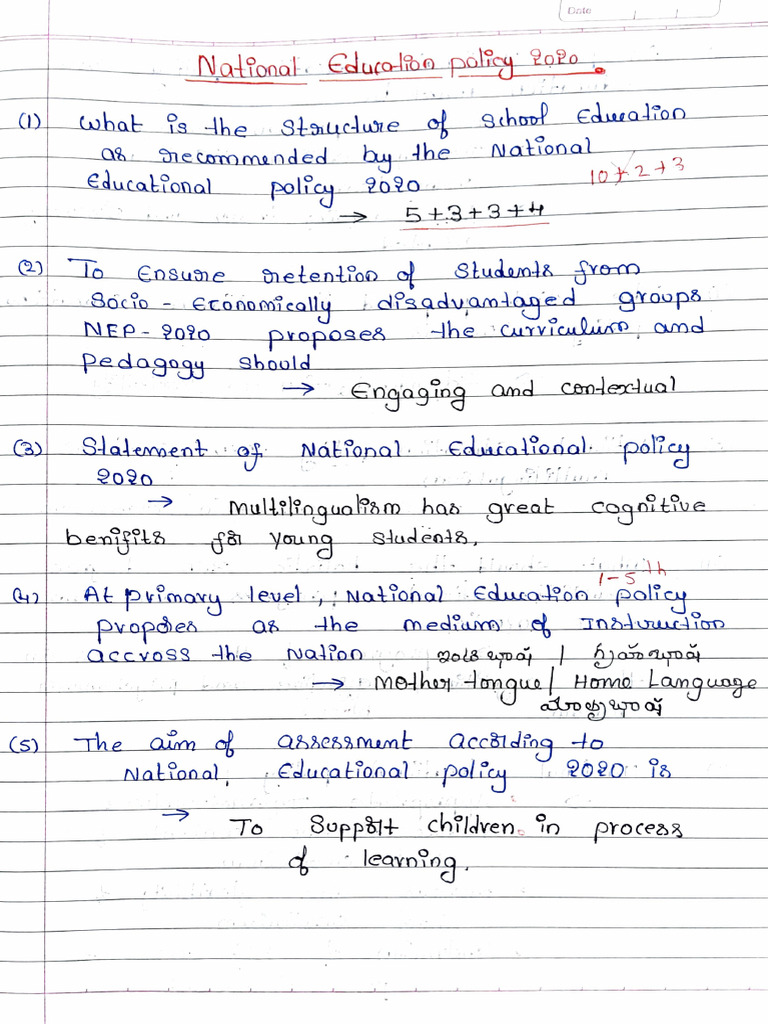 Date
National Education policy 2020.
(1) What is the structure of School Education
as recommended by the National
Educational policy 2020.
10+2+3
→ 5+3+3+4
(2) To Ensure retention of Students from
Socio-Economically disadvantaged groups
NEP-2020 proposes the curriculum and
pedagogy should
→ Engaging and contextual
(3) Statement of National Educational policy
2020
→ Multilingualism has great cognitive
benifits for young students.
1-5th
(4) At primary level, National Education policy
proposes as the medium of Instruction
accross the Nation ఇంటి భాష | గృహభాష
→ Mother tongue / Home Language
మాతృభాష
(5) The aim of assessment according to
National Educational policy 2020 is
→
To Support children in process
of learning.